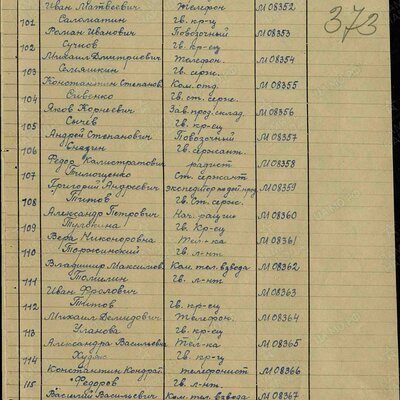 373
Иван Матвеевич Телефон. М 08352
101 Саломатин Гв. кр-ец
Роман Иванович Повозочный М 08353
102 Сучков Гв. кр-ец
Михаил Дмитриевич Телефон. М 08354
103 Семяшкин Гв. серж.
Константин Степанов. Ком. отд. М 08355
104 Гв. ст. серж.
Яков Корнеевич Зав. прод. склад. М 08356
105 Сычёв Гв. кр-ец
Андрей Степанович Повозочный М 08357
106 Гв. сержант
Федор Калистратович радист М 08358
107 Тимощенко Ст. сержант
Григорий Андреевич Экспедитор М 08359
108 Титов Гв. Ст. серж.
Александр Петрович Нач. рации М 08360
109 Гв. Кр-ец
Вера Никоноровна Тел-ка М 08361
110 Гв. л-нт
Владимир Максимов. Ком. тел. взвода М 08362
111 Гв. л-нт.
Иван Фролович М 08363
112 Титов Гв. кр-ец
Михаил Демидович Телефон. М 08364
113 Уланова Гв. кр-ец
Александра Васильевна Тел-ка М 08365
114 Гв. кр-ец
Константин Кондрат. телефонист М 08366
115 Федоров Гв. л-нт.
Василий Васильевич Ком. тел. взвода М 08367